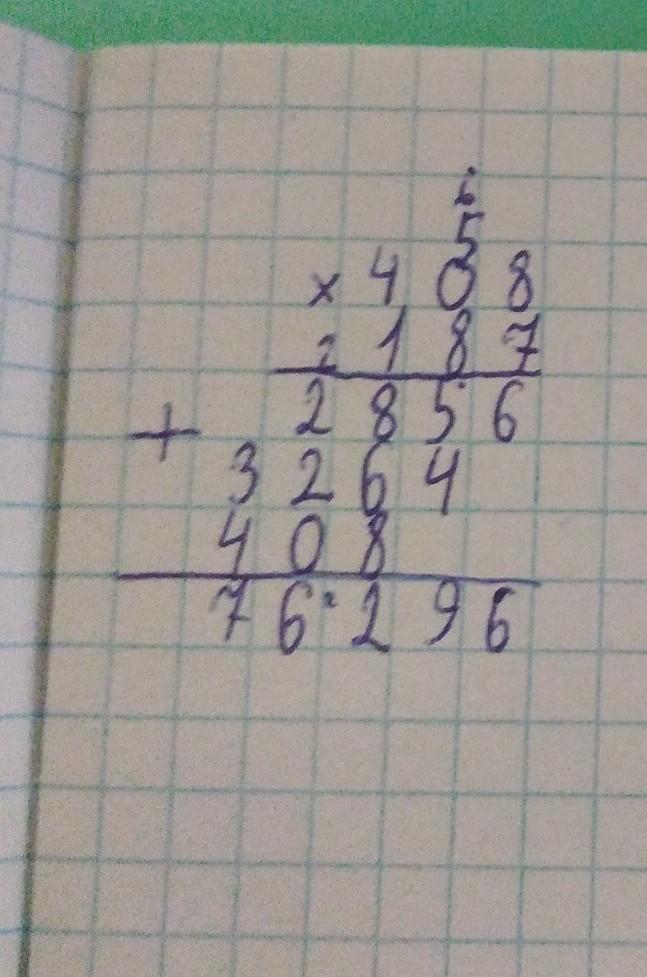 6
5
× 4 0 8
2 1 8 7
2 8 5 6
+
3 2 6 4
4 0 8
7 6 2 9 6